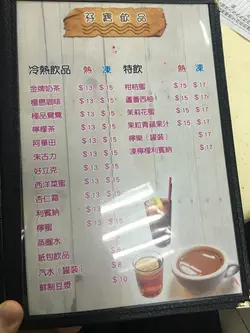 飲品
冷熱飲品 熱 凍 特飲 熱 凍
金牌奶茶 $13 $15 柑桔蜜 $15 $17
極品咖啡 $13 $15 蘆薈西柚 $15 $17
極品鴛鴦 $13 $15 茉莉花蜜 $15 $17
檸檬茶 $13 $15 朱粒青蘋果汁 $15 $17
阿華田 $13 $15 檸樂（罐裝） $15
朱古力 $13 $15 凍檸檬利賓納 $17
好立克 $13 $15
西洋菜蜜 $13 $15
杏仁霜 $13 $15
利賓納 $13 $15
檸蜜 $13 $15
蒸餾水
紙包飲品
汽水（罐裝） $8
鮮制豆漿 $10